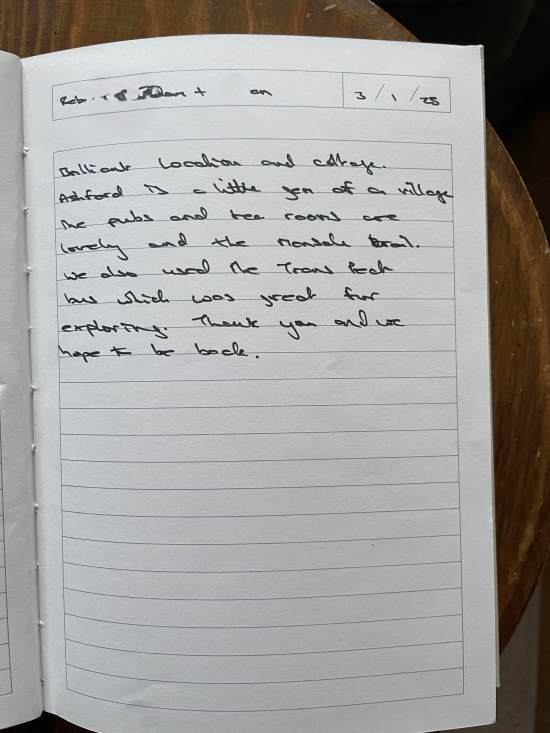 an 3/1/25
Brilliant Location and cottage.
Ashford is a little gem of a village
The pubs and tea rooms are
lovely and the monsale trail.
we also used the Trans Peak
bus which was great for
exploring. Thank you and we
hope to be back.